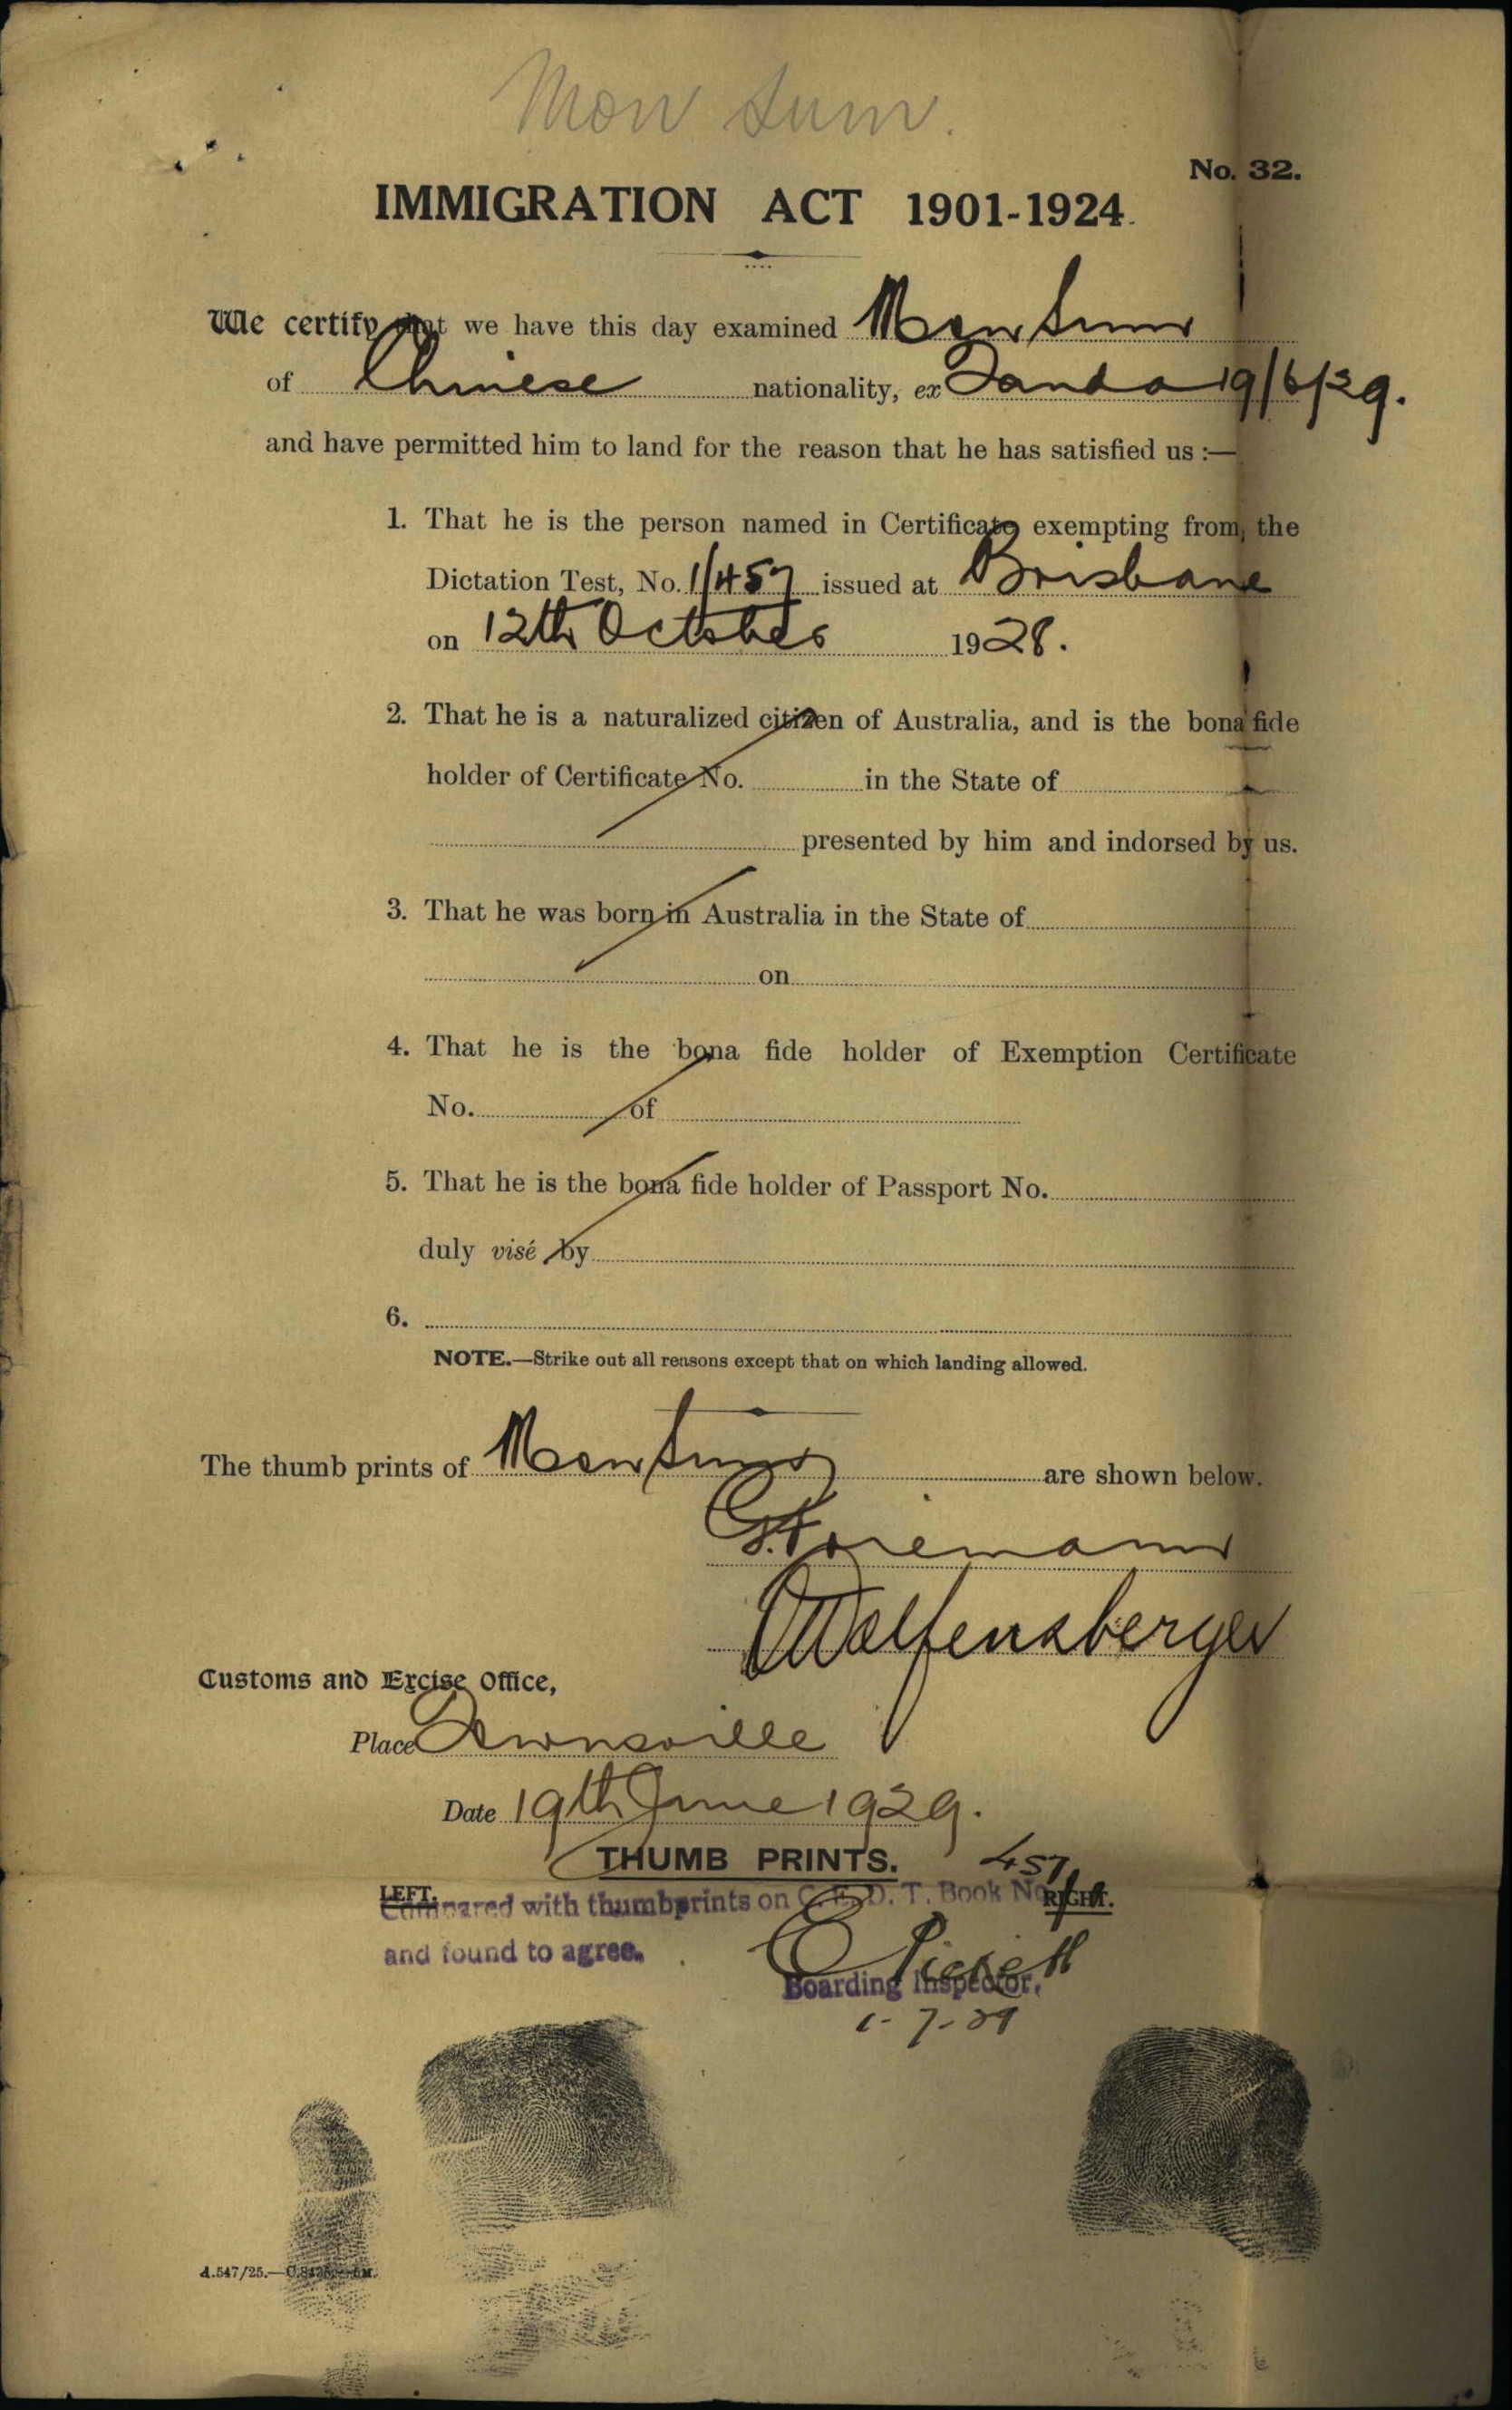 Mon Sum.
No. 32.
IMMIGRATION ACT 1901-1924.
We certify that we have this day examined Mon Sum
of Chinese nationality, ex Tanda 19/6/29.
and have permitted him to land for the reason that he has satisfied us :—
1. That he is the person named in Certificate exempting from the
Dictation Test, No. 1/457 issued at Brisbane
on 12th October 1928.
2. That he is a naturalized citizen of Australia, and is the bona fide
holder of Certificate No. in the State of
presented by him and indorsed by us.
3. That he was born in Australia in the State of
on
4. That he is the bona fide holder of Exemption Certificate
No. of
5. That he is the bona fide holder of Passport No.
duly visé by
6.
NOTE.—Strike out all reasons except that on which landing allowed.
The thumb prints of Mon Sum are shown below.
G. Foreman
Wolfensberger
Customs and Excise Office,
Place Townsville
Date 19th June 1929.
THUMB PRINTS. 457
LEFT. RIGHT.
Compared with thumbprints on C.E.D.T. Book No.
and found to agree.
Boarding Inspector,
1-7-29
A.547/25.—